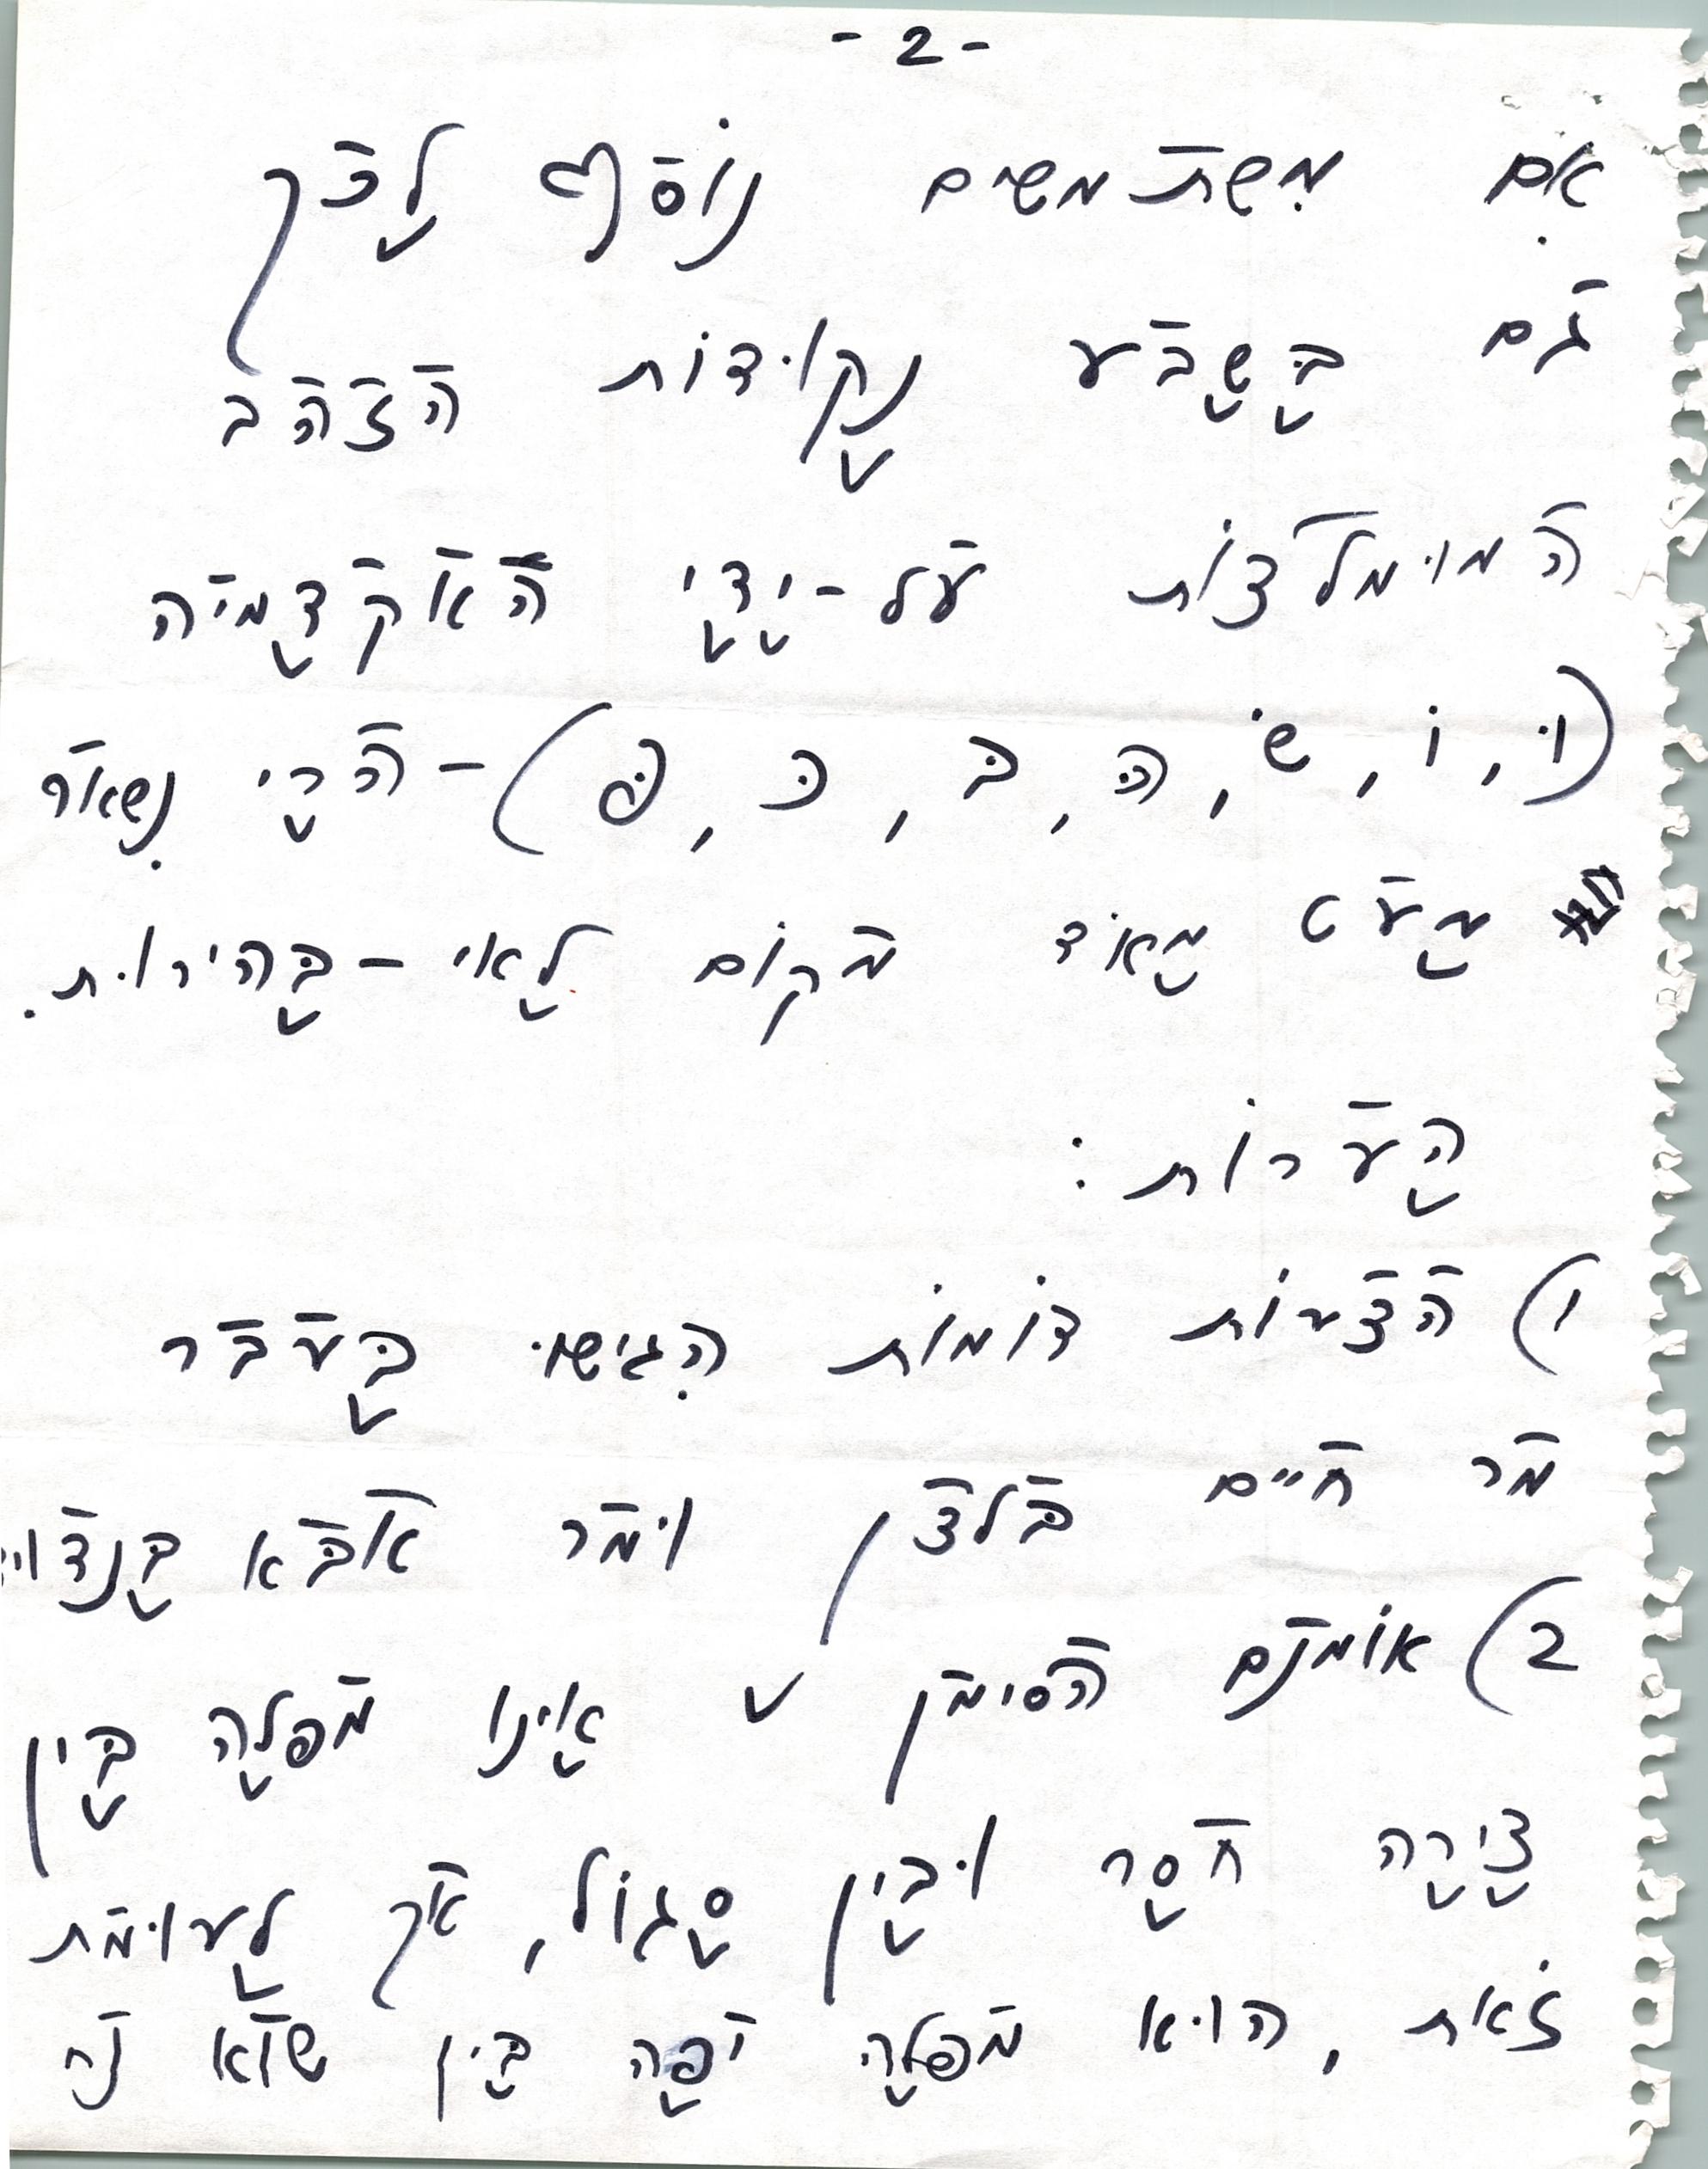 - 2 -
אם משתמשים נוסף לכך
גם בשבע נקודות הזהב
המומלצות על-ידי האקדמיה
(וּ, וֹ, שׂ, הּ, בּ, כּ, פּ) - הרי נשאר
מעט מאוד מקום לאי-בהירות.
הערות:
1) הצעות דומות הגישו בעבר
מר חיים בלצן ומר אבא בנדויד
2) אומנם הסימן ˇ אינו מפלה בין
צירה חסר ובין סגול, אך לעומת
זאת, הוא מפלה יפה בין שווא נח